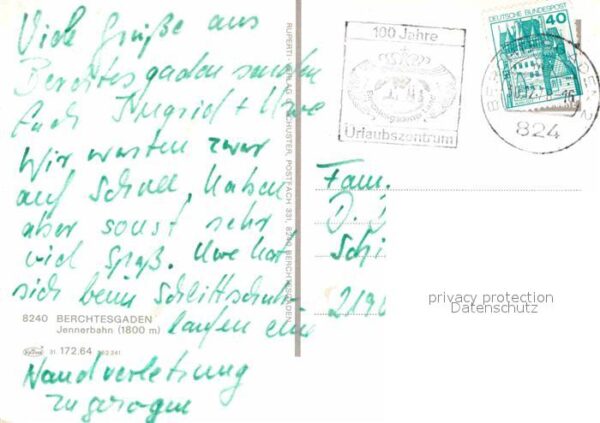 Viele Grüße aus
Berchtesgaden senden
Euch Ingrid + Uwe
Wir warten zwar
auf Schnee, haben
aber sonst sehr
viel Spaß. Uwe hat
sich beim Schlittschuh-
laufen eine
Handverletzung
zugezogen
8240 BERCHTESGADEN
Jennerbahn (1800 m)
31 172.64
RUPERTI VERLAG SCHUSTER, POSTFACH 331, 8240 BERCHTESGADEN
100 Jahre
Urlaubszentrum
DEUTSCHE BUNDESPOST
40
824
Fam.
privacy protection
Datenschutz